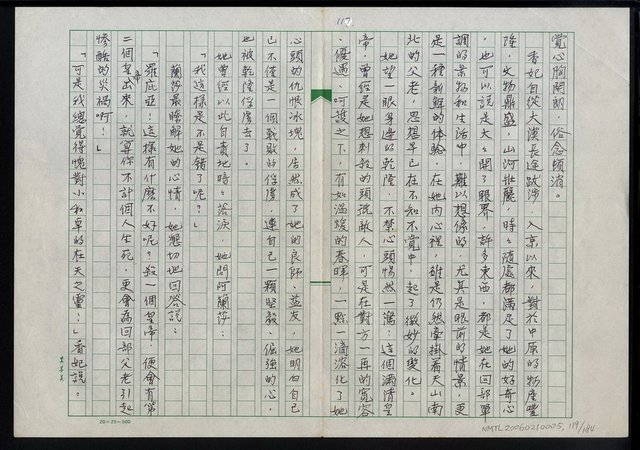 117
覺心胸開朗，俗念頓消。
香妃自從大漠長途跋涉，入京以來，對於中原的物產豐
隆，文物鼎盛，山河壯麗，時時隨處都滿足了她的好奇心
，也可以說是大大開了眼界，許多東西，都是她在回部單
調的景物和生活中，難以想像的，尤其是眼前的情景，更
是一種新鮮的体驗，在她内心裡，雖是仍然牽掛着天山南
北的父老，思想早已在不知不覺中，起了微妙的變化。
她望一眼身邊的乾隆，不禁心頭惕然一瀉：這個滿清皇
帝，曾經是她想刺殺的頭號敵人，可是在對方一再的寬容
、優遇、呵護之下，有如溫煖的春暉，一點一滴溶化了她
心頭的仇恨冰塊，居然成了她的良師、益友，她明白自
己不僅是一個戰敗的俘虜，連自己一顆堅毅、倔強的心，
也被乾隆俘虜去了。
她曾經以此自責地暗々落淚，她問阿蘭莎：
「我這樣是不是錯了呢？」
蘭莎最瞭解她的心情，她懇切地回答說：
「羅庇亞！這樣有什麼不好呢？殺一個皇帝，便會有第
二個皇帝出來，就算你不計個人生死，更會為回部父老引起
慘酷的災禍啊！」
「可是我總覺得愧對小和卓的在天之靈！」香妃說。
20×25=500
NMTL20060210005, 119/184